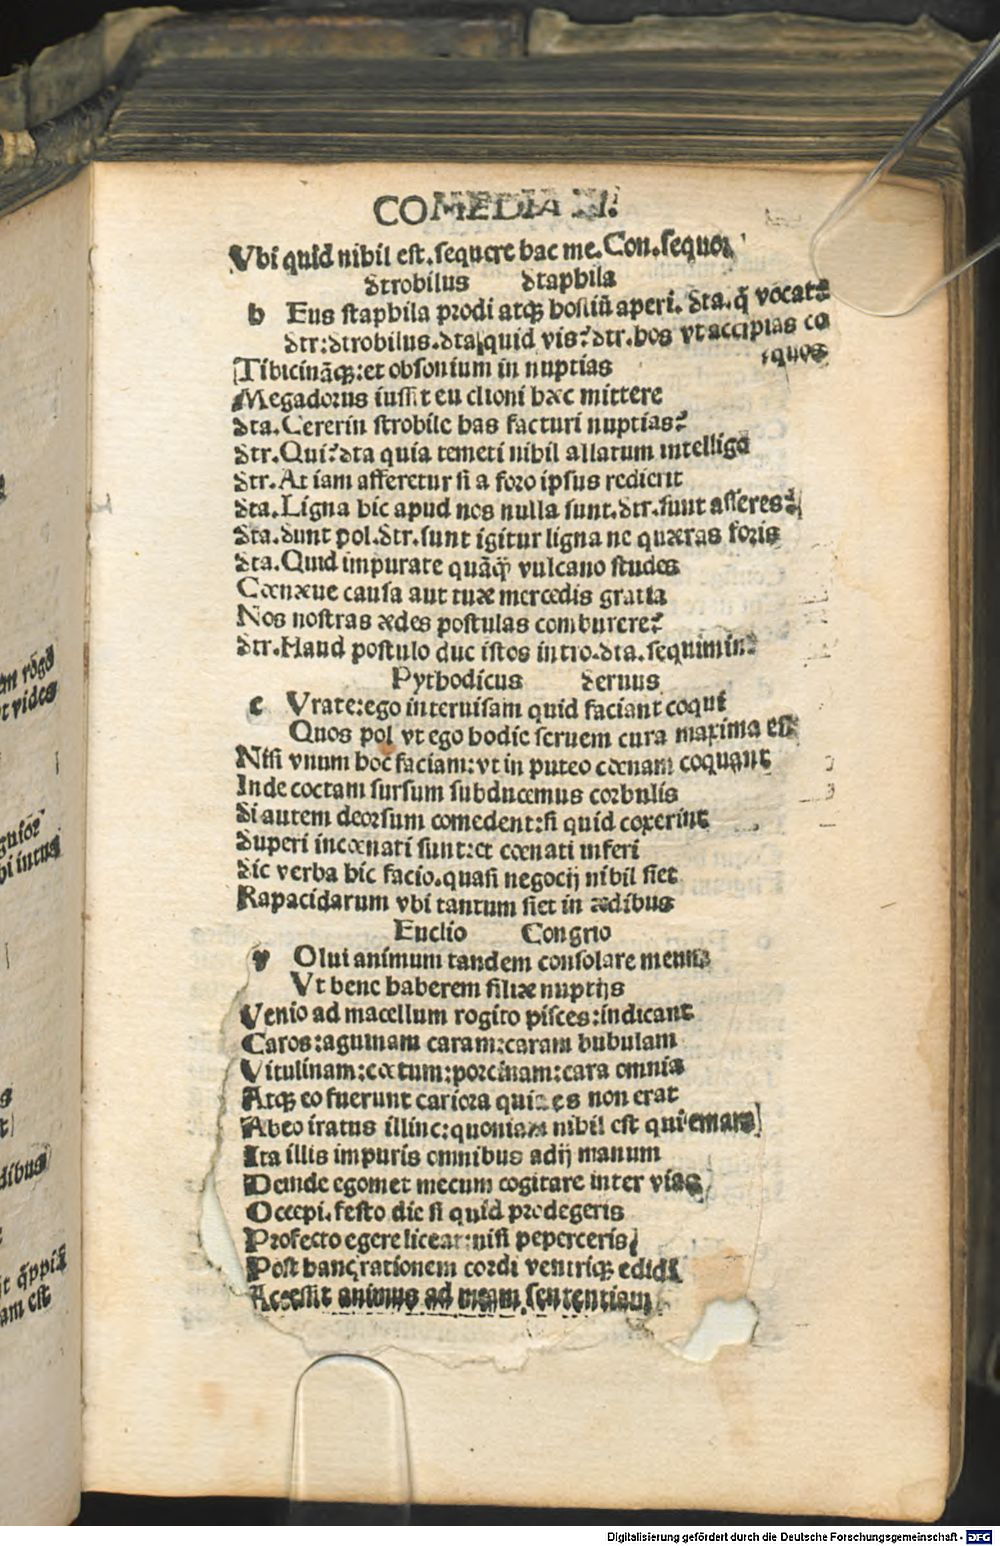 COMEDIA II.
Vbi quid nihil est. sequere hac me. Con. sequor
Strobilus Staphila
h Eus staphila prodi atqȝ hostiũ aperi. Sta. q̃ vocat?
Str: Strobilus. Sta quid vis? Str. hos vt accipias co
quos
Tibicinãqȝ: et obsonium in nuptias
Megadorus iussit eu clioni hæc mittere
Sta. Cererin strobile has facturi nuptias?
Str. Qui? Sta quia temeti nihil allatum intelligo
Str. At iam afferetur si a foro ipsus redierit
Sta. Ligna hic apud nos nulla sunt. Str. sunt asseres?
Sta. Sunt pol. Str. sunt igitur ligna ne quæras foris
Sta. Quid impurate quãqȝ vulcano studes
Cœnæue causa aut tuæ mercedis gratia
Nos nostras ædes postulas comburere?
Str. Haud postulo duc istos intro. Sta. sequimini?
Pythodicus Seruus
c Vrate: ego interuisam quid faciant coqui
Quos pol vt ego hodie seruem cura maxima est
Nisi vnum hoc faciam: vt in puteo cœnam coquant
Inde coctam sursum subducemus corbulis
Si autem deorsum comedent: si quid coxerint
Superi incœnati sunt: et cœnati inferi
Sic verba hic facio. quasi negocij nihil siet
Rapacidarum vbi tantum siet in ædibus
Euclio Congrio
v Olui animum tandem consolare meum
Vt bene haberem filiæ nuptijs
Venio ad macellum rogito pisces: indicant
Caros: agninam caram: caram bubulam
Vitulinam: cœtum: porcinam: cara omnia
Atqȝ eo fuerunt cariora quia es non erat
Abeo iratus illinc: quoniam nihil est qui emam
Ita illis impuris omnibus adij manum
Deinde egomet mecum cogitare inter vias
Occepi. festo die si quid prodegeris
Profecto egere liceat: nisi peperceris
Post hanc rationem cordi ventriqȝ edidi
Accessit animus ad meam sententiam
em rõgo
t vides
bi intus
dibus
am est
Digitalisierung gefördert durch die Deutsche Forschungsgemeinschaft - DFG